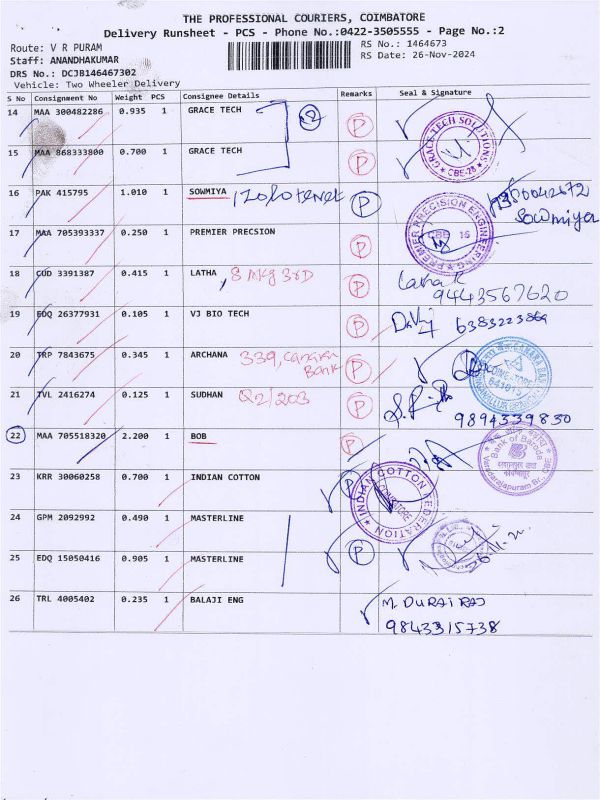 THE PROFESSIONAL COURIERS, COIMBATORE
Delivery Runsheet - PCS - Phone No.:0422-3505555 - Page No.:2
Route: V R PURAM
RS No.: 1464673
Staff: ANANDHAKUMAR
RS Date: 26-Nov-2024
DRS No.: DCJB146467302
Vehicle: Two Wheeler Delivery
S No Consignment No Weight PCS Consignee Details Remarks Seal & Signature
14 MAA 300482286 0.935 1 GRACE TECH 2 P
GRACE TECH SOLUTIONS CBE-28
15 MAA 868333800 0.700 1 GRACE TECH P
16 PAK 415795 1.010 1 SOWMIYA P
Sowmiya
17 MAA 705393337 0.250 1 PREMIER PRECSION P
PREMIER PRECISION ENGINEERING
18 COD 3391387 0.415 1 LATHA, 8 Mkg 3RD P Latha R
9443567620
19 EDQ 26377931 0.105 1 VJ BIO TECH P 6383223869
20 TRP 7843675 0.345 1 ARCHANA 339, Canara Bank P
21 TVL 2416274 0.125 1 SUDHAN Q2/203 P
9894339830
22 MAA 705518320 2.200 1 BOB P
Bank of Baroda
23 KRR 30060258 0.700 1 INDIAN COTTON P
INDIAN COTTON FEDERATION COIMBATORE
24 GPM 2092992 0.490 1 MASTERLINE
25 EDQ 15050416 0.905 1 MASTERLINE P
26 TRL 4005402 0.235 1 BALAJI ENG M. DURAI RAJ
9843315738